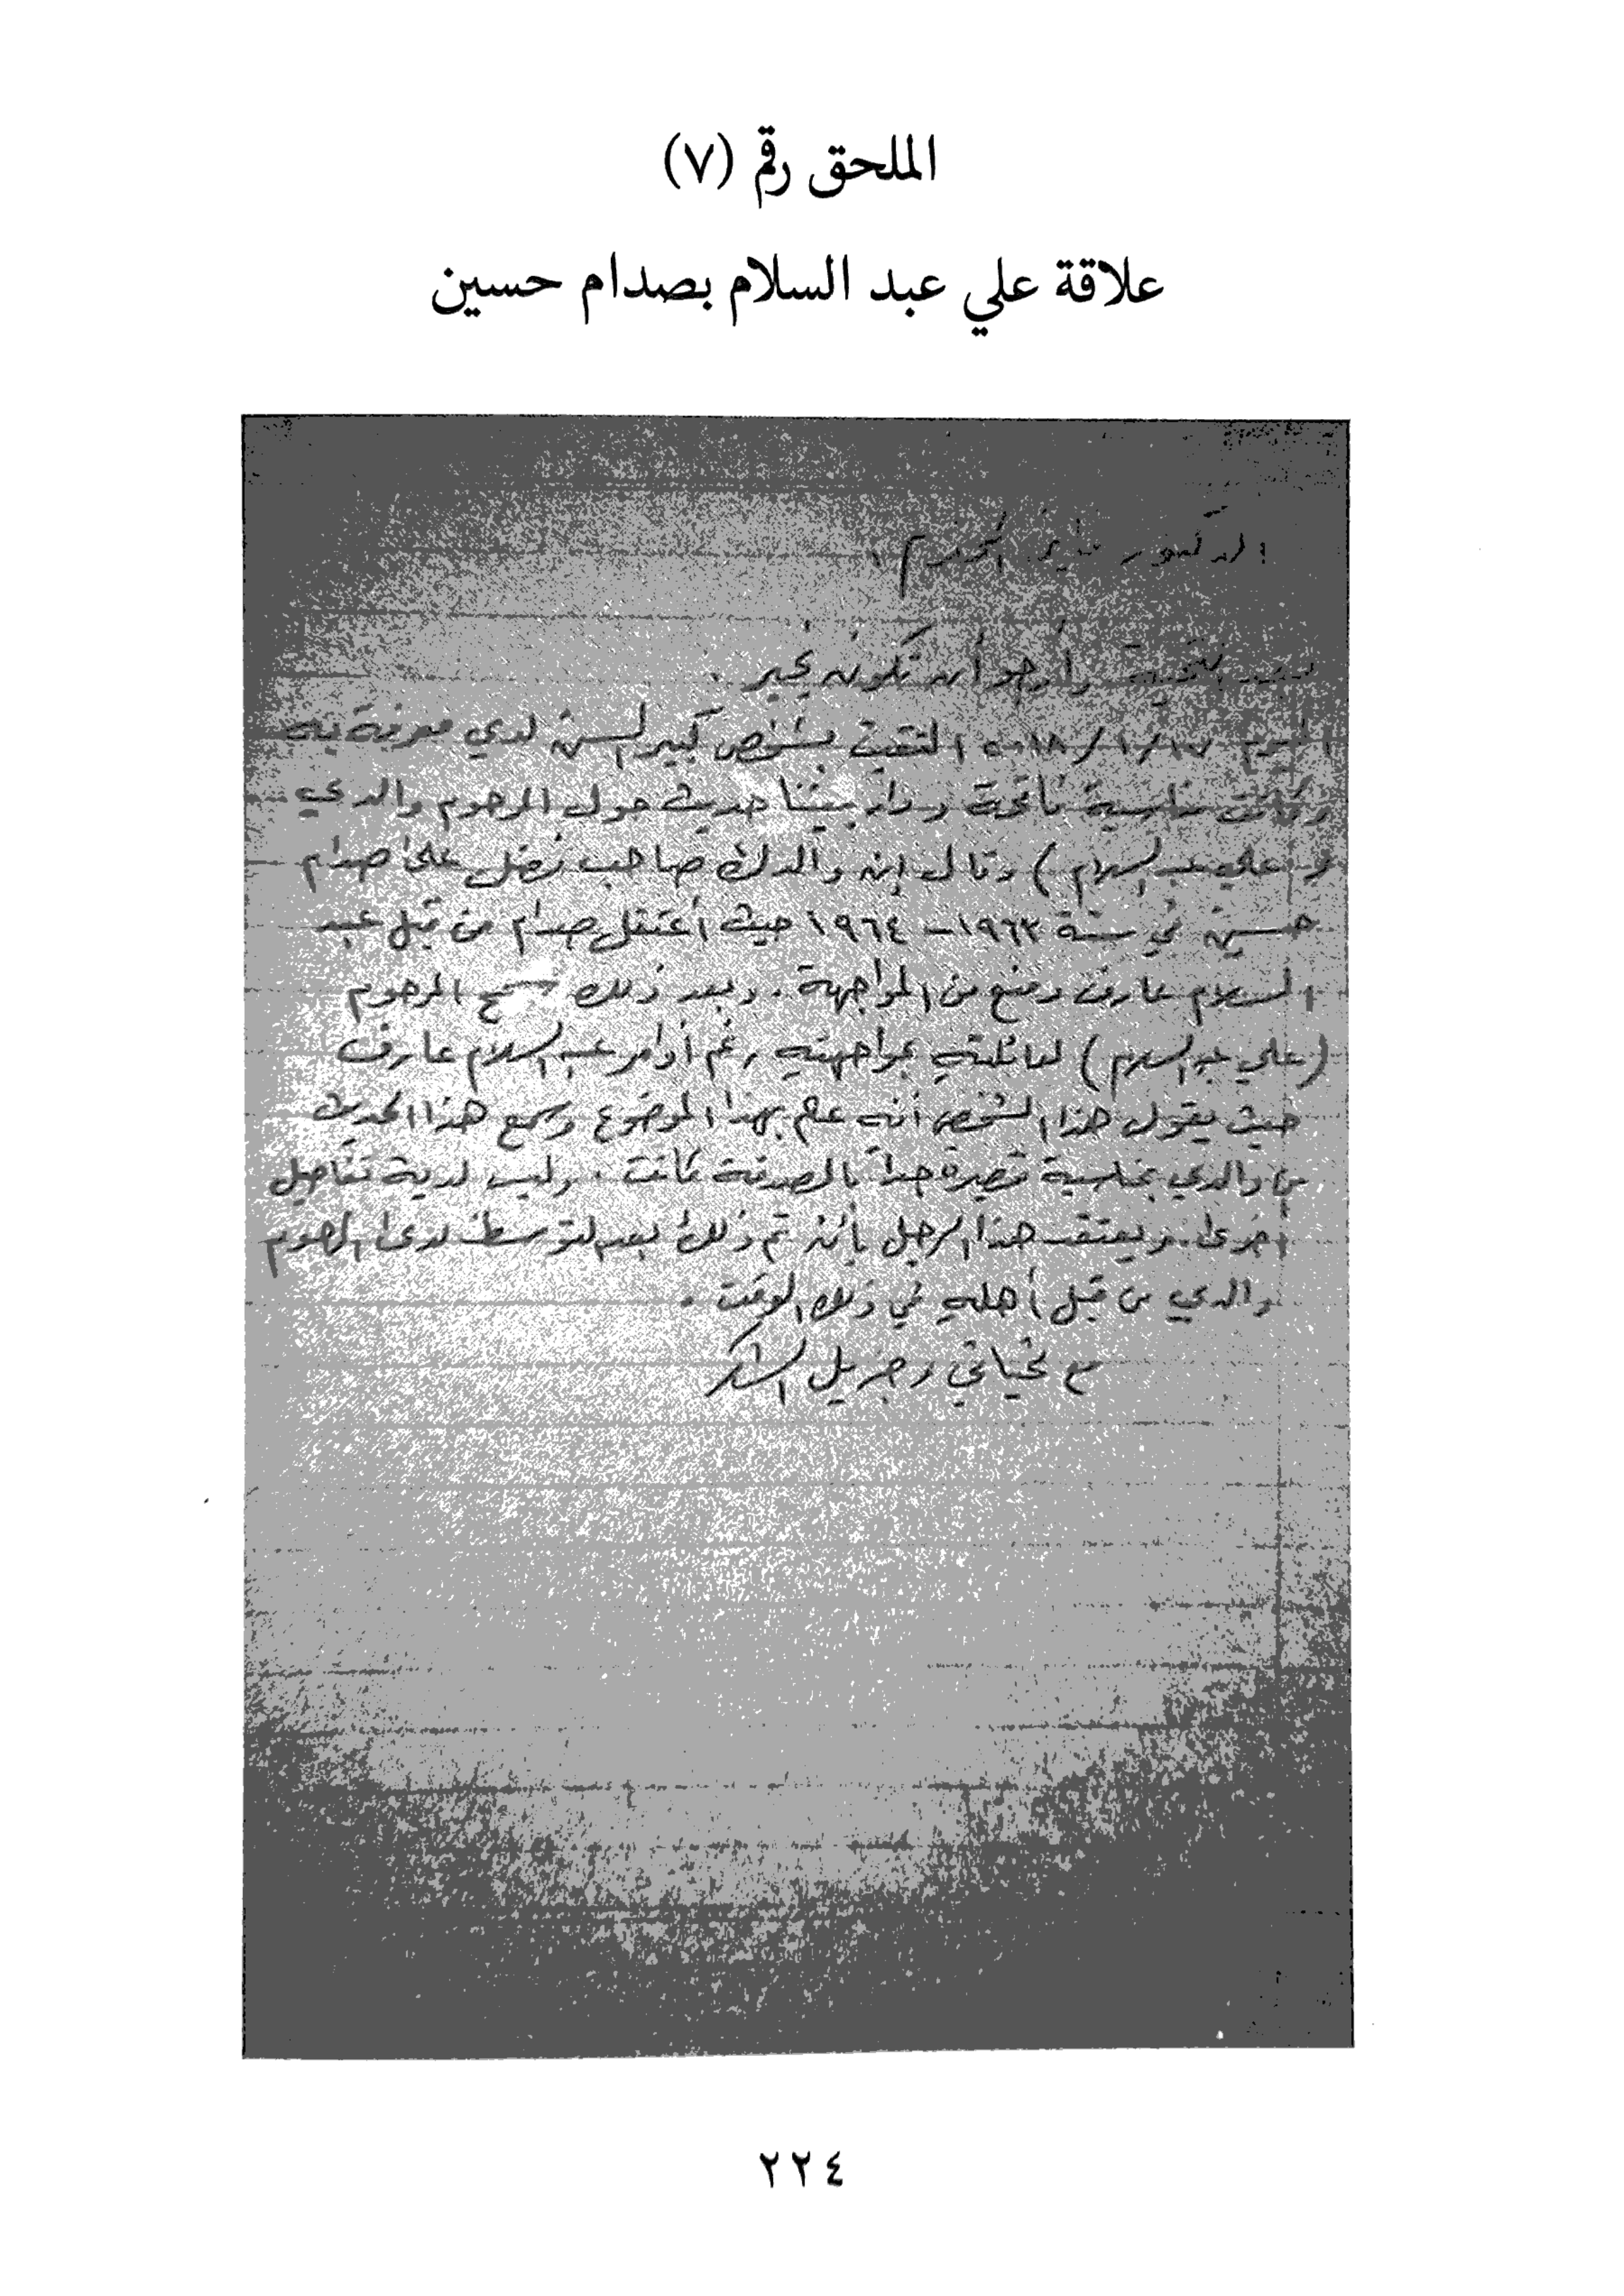 الملحق رقم (٧)
علاقة علي عبد السلام بصدام حسين
الدكتور المحترم،
بعد التحية وأرجو أن تكون بخير .
اليوم ٢٠١٨/١/١٧ التقيت بشخص كبير السن لدي معرفة به
وكانت مناسبة فاتحة ودار بيننا حديث حول المرحوم والدي
(علي عبد السلام) وقال إن والدك صاحب فضل على صدام
حسين في سنة ١٩٦٣-١٩٦٤ حيث أعتقل صدام من قبل عبد
السلام عارف ومنع من المواجهة . وبعد ذلك سمح المرحوم
(علي عبد السلام) لعائلته بمواجهته رغم أوامر عبد السلام عارف
حيث يقول هذا الشخص أنه علم بهذا الموضوع وسمع هذا الحديث
من والدي بمناسبة قصيرة جداً بالصدفة كانت . وليس لدية تفاصيل
اخرى. ويعتقد هذا الرجل بأن تم ذلك بعد التوسط لدى المرحوم
والدي من قبل أهله في ذلك الوقت .
مع تحياتي وجزيل الشكر
٢٢٤